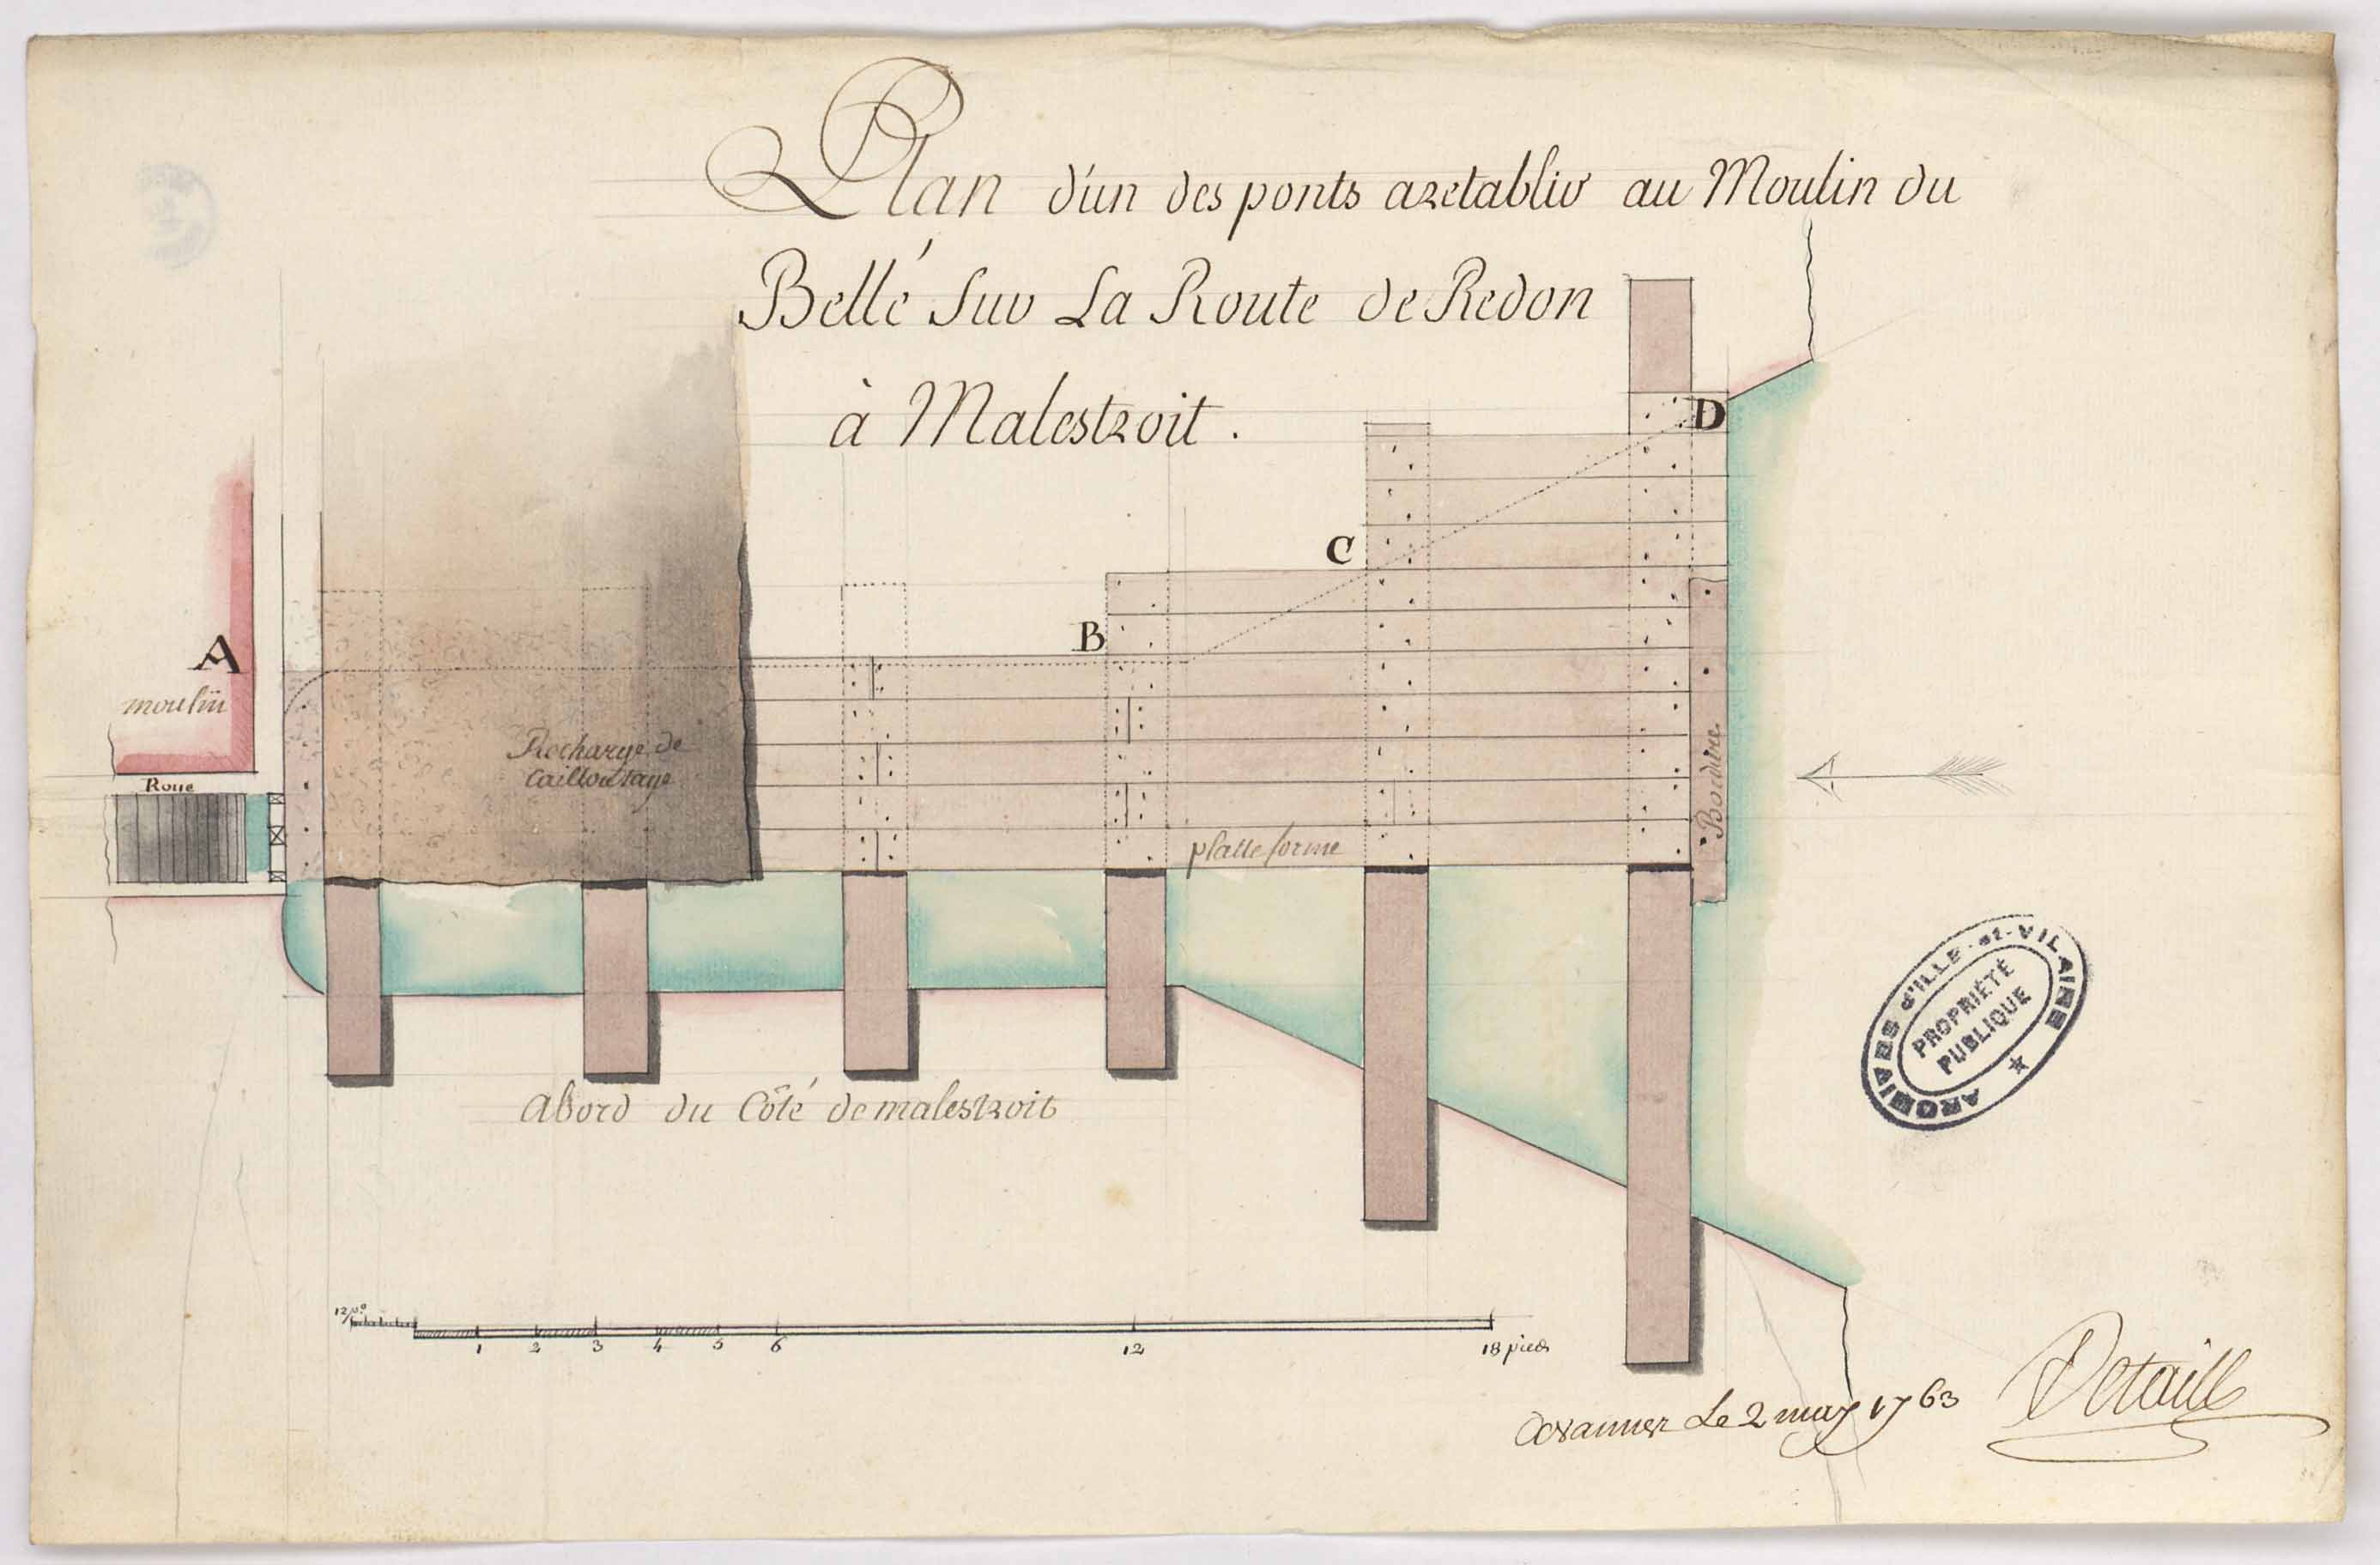 Plan d'un des ponts aretablir au Moulin du
Bellé Sur La Route de Redon
à Malestroit.
D
C
B
A
moulin
Recharge de
Cailloutage
Roue
Bordure
platte forme
ARCHIVES d'ILLE-et-VILAINE
PROPRIÉTÉ
PUBLIQUE
Abord du Côté de malestroit
12 po.
1 2 3 4 5 6 12 18 pieds
Le 2 may 1763
Detaille